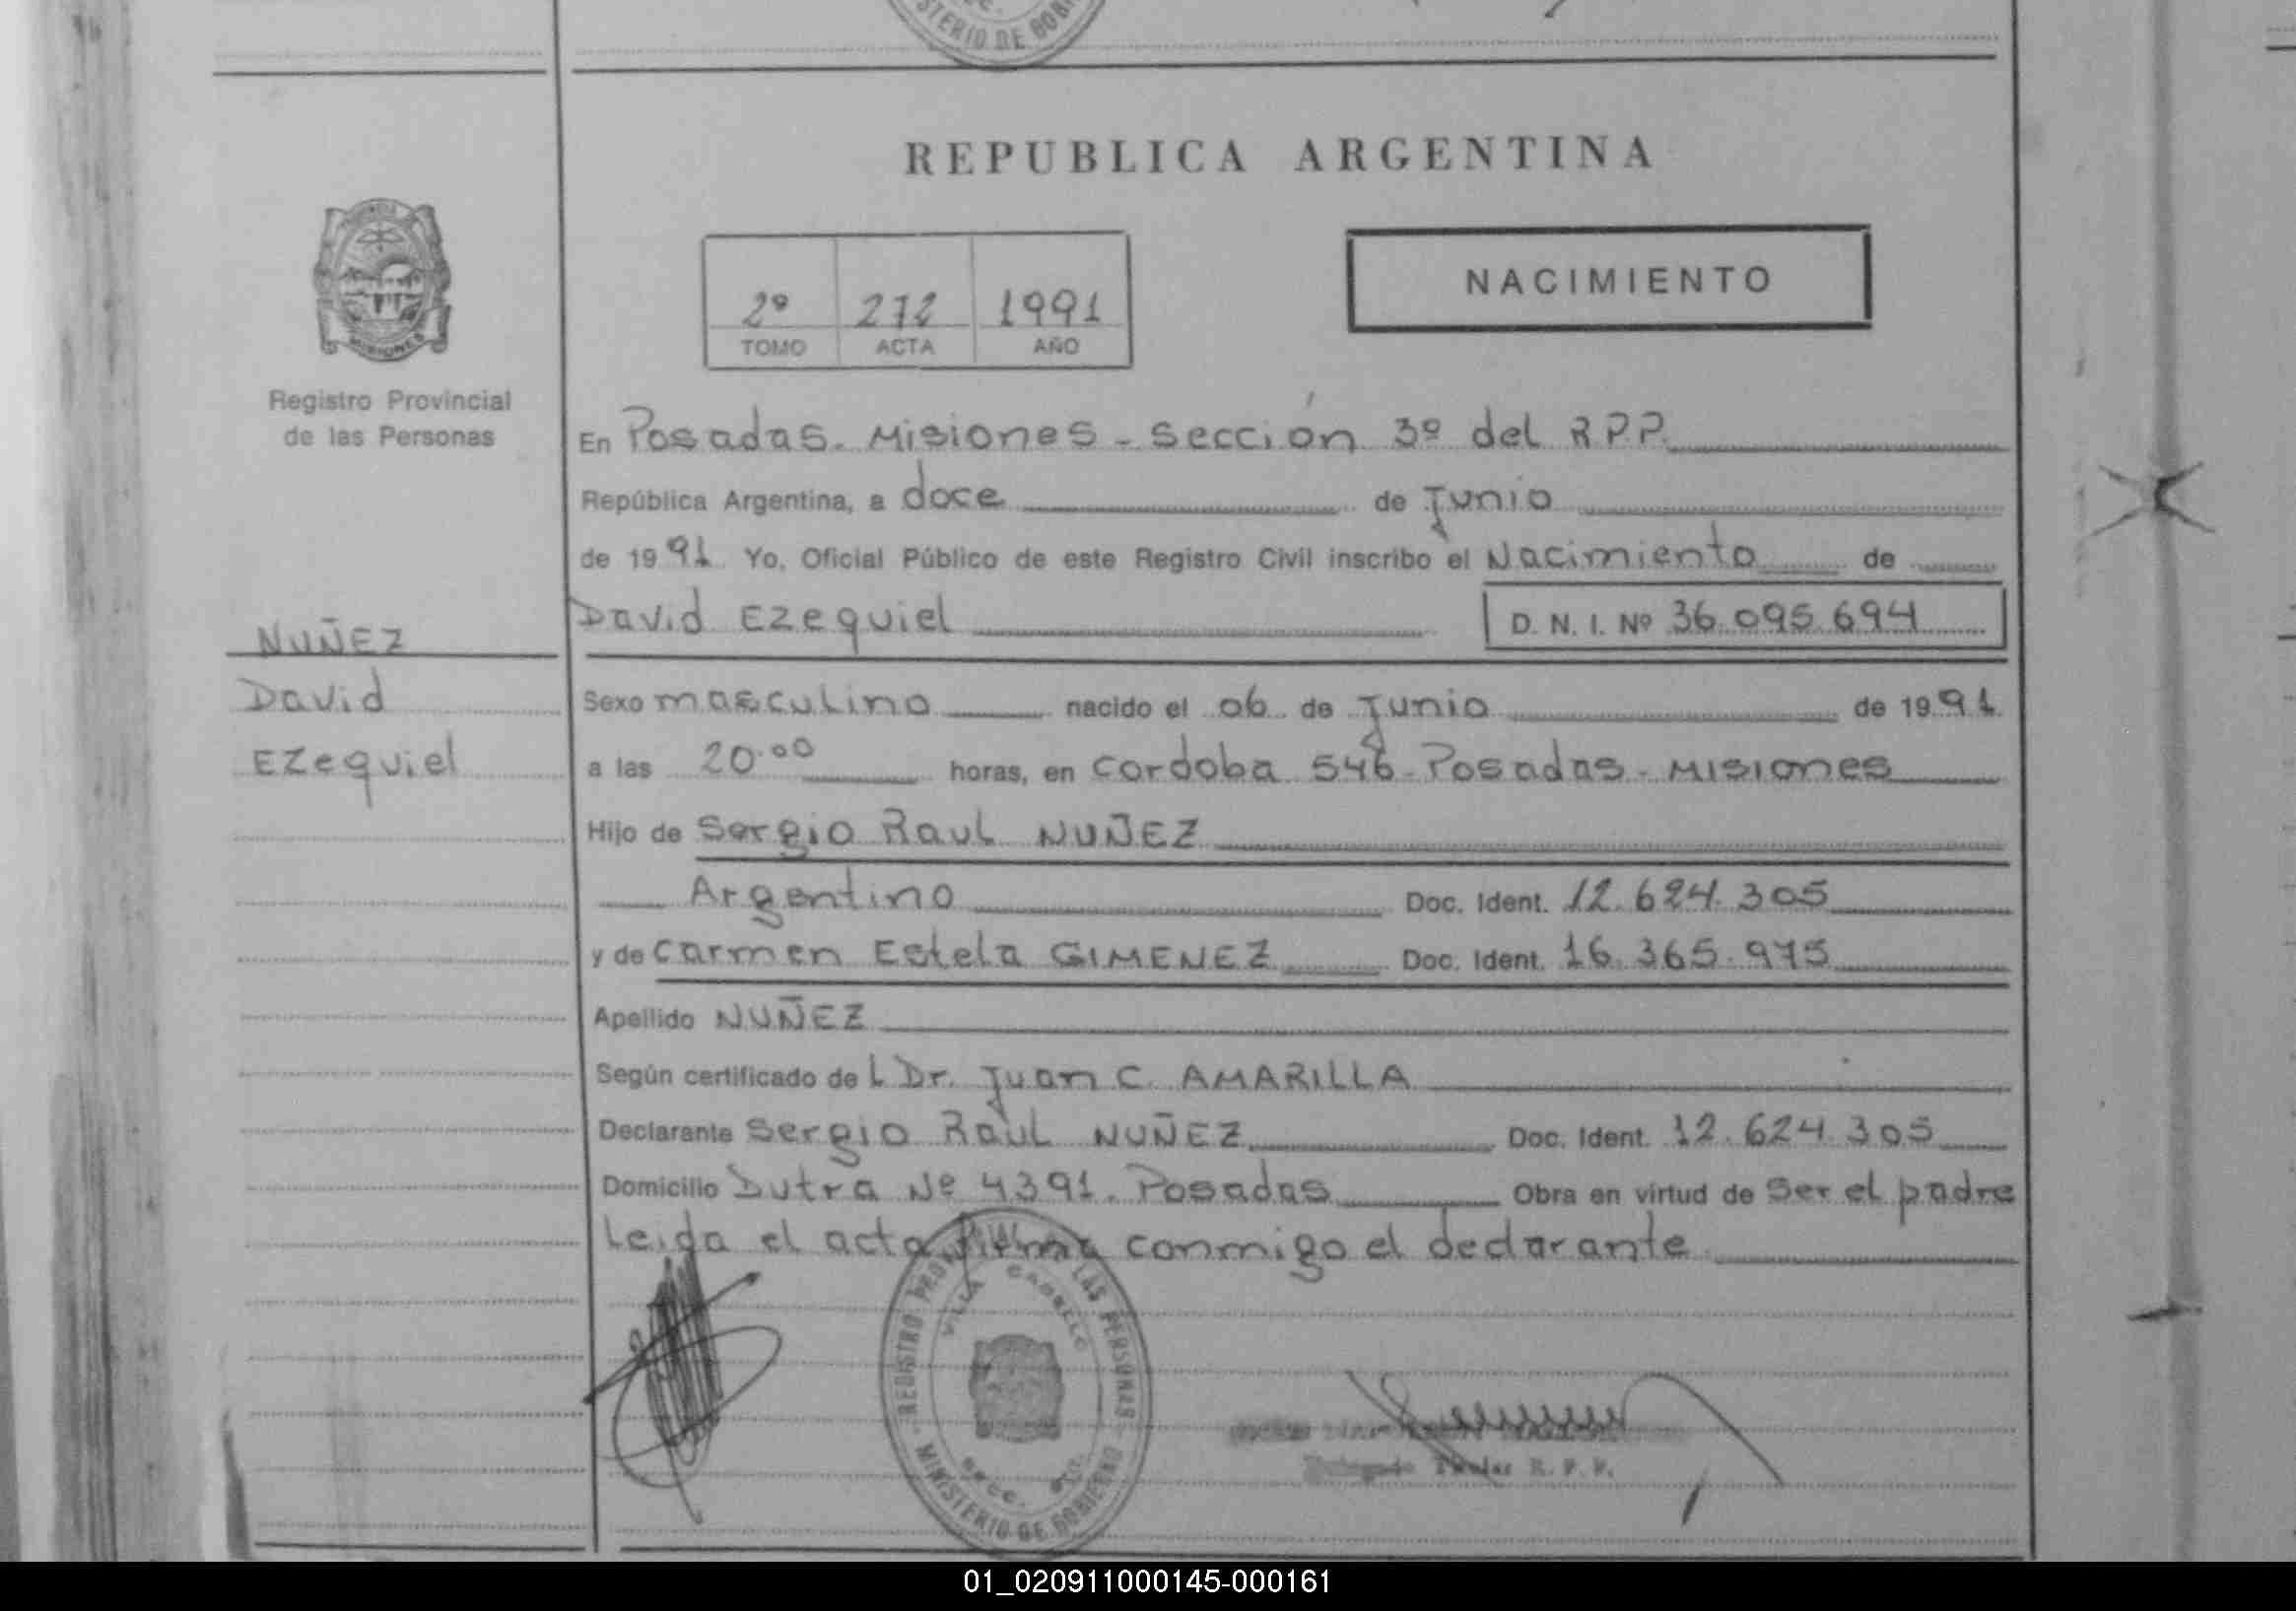 STERIO DE GOBI
REPUBLICA ARGENTINA
NACIMIENTO
2º 272 1991
TOMO ACTA AÑO
MISIONES
Registro Provincial
de las Personas
En Posadas. Misiones - Sección 3º del R.P.P.
República Argentina, a doce de Junio
de 1991 Yo, Oficial Público de este Registro Civil inscribo el Nacimiento de
David Ezequiel D. N. I. Nº 36.095.694
NUÑEZ
David
Ezequiel
Sexo masculino nacido el 06 de Junio de 1991
a las 20.00 horas, en Cordoba 546 - Posadas - Misiones
Hijo de Sergio Raul NUÑEZ
Argentino Doc. Ident. 12.624.305
y de Carmen Estela GIMENEZ Doc. Ident. 16.365.975
Apellido NUÑEZ
Según certificado del Dr. Juan C. AMARILLA
Declarante Sergio Raúl NUÑEZ Doc. Ident. 12.624.305
Domicilio Dutra Nº 4391. Posadas Obra en virtud de Ser el padre
Leida el acta firma conmigo el declarante
REGISTRO PROVINCIAL DE LAS PERSONAS
VILLA CABELLO
MINISTERIO DE GOBIERNO
Titular R. P. P.
01_020911000145-000161